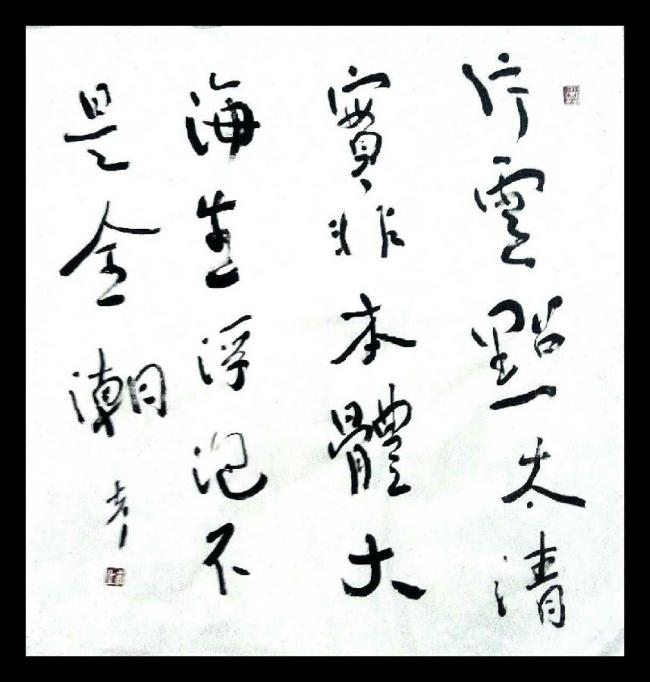 片雲點太清
實非本體大
海生浮泡不
是全潮